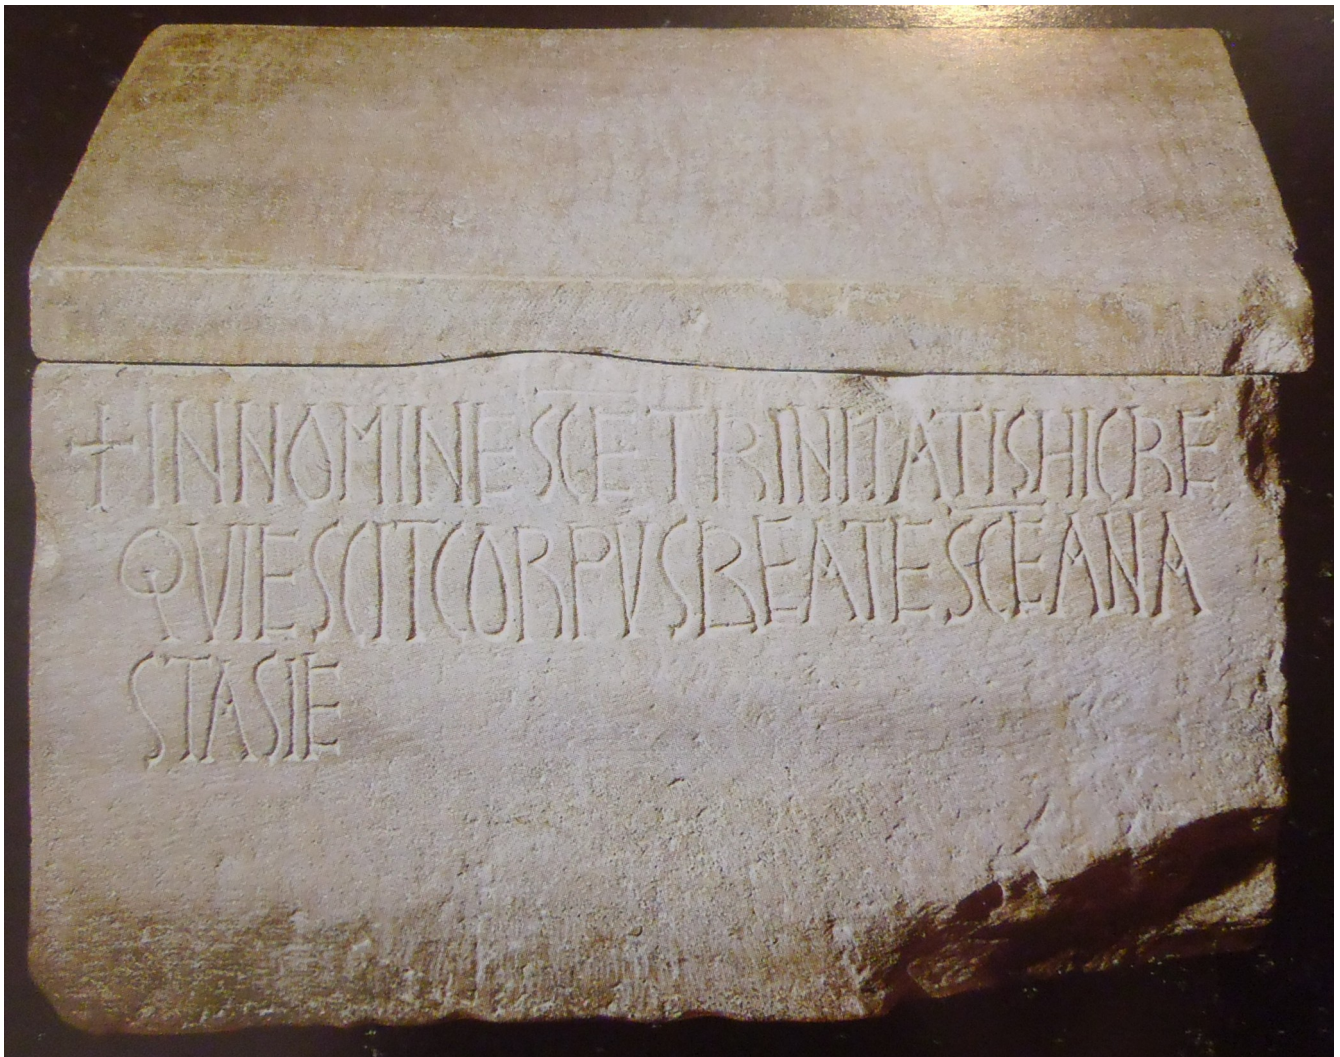 + INNOMINESCETRINITATISHICRE
QVIESCITCORPVSBEATESCEANA
STASIE